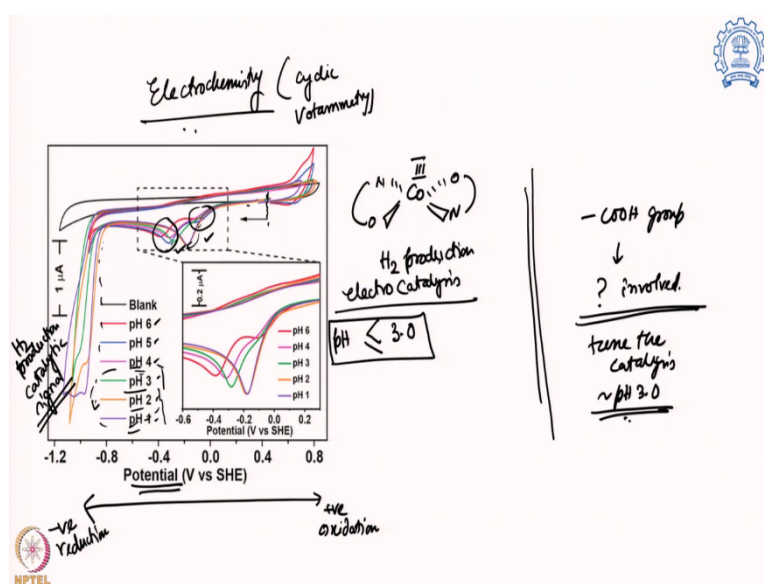 Electrochemistry (cyclic
Votammetry)
1 μA
Blank
pH 6
pH 5
pH 4
pH 3
pH 2
pH 1
-1.2 -0.8 -0.4 0.0 0.4 0.8
Potential (V vs SHE)
0.2 μA
pH 6
pH 4
pH 3
pH 2
pH 1
-0.6 -0.4 -0.2 0.0 0.2
Potential (V vs SHE)
H2 production catalytic signal
-ve
reduction
+ve
oxidation
III
N Co O
O N
H2 production
electro Catalysis
pH ≤ 3.0
- COOH group
↓
? involved.
tune the
catalysis
~pH 3.0
NPTEL